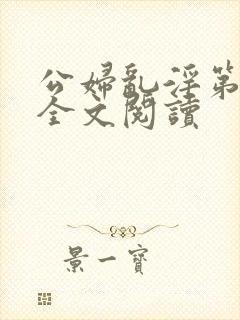 公婦亂淫第
全文閱讀
景一寶